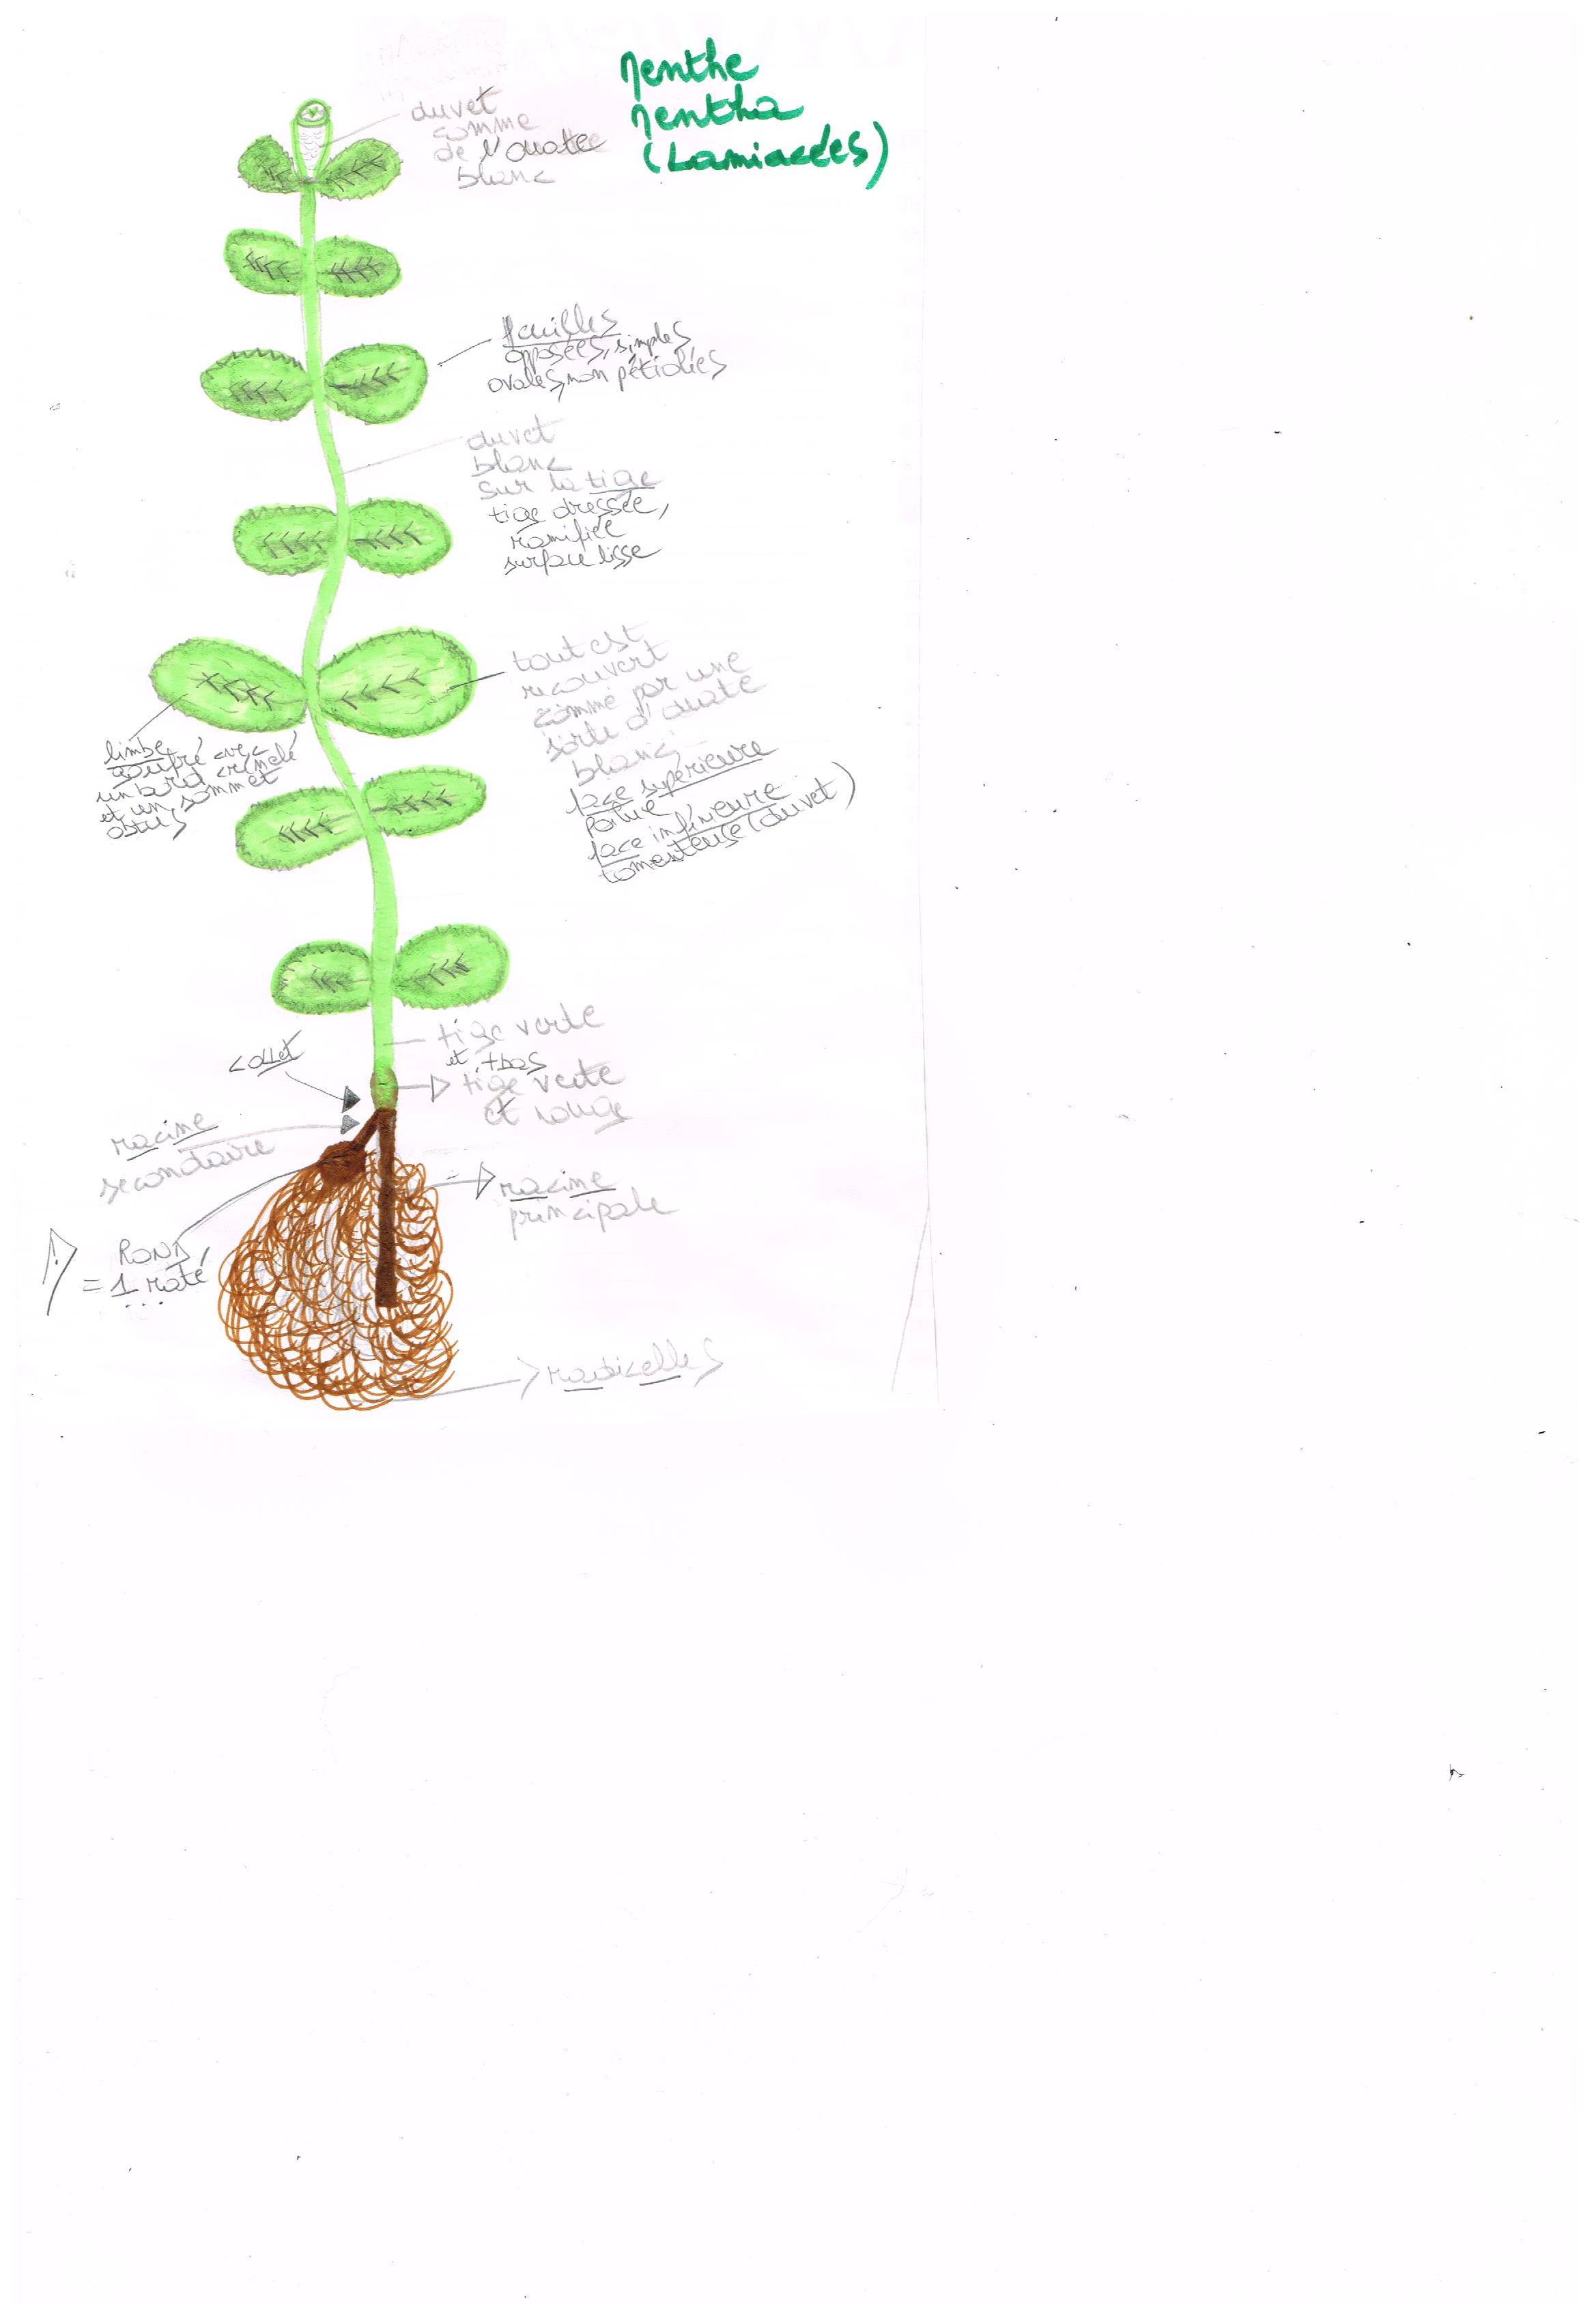 Menthe
Mentha
(Lamiacées)
duvet
comme
de l'ouate
blanc
feuilles
opposées, simples
ovales, non pétiolées
duvet
blanc
sur la tige
tige dressée,
ramifiée
surface lisse
tout est
recouvert
comme par une
sorte d'ouate
blanc
face supérieure
poilue
face inférieure
tomenteuse (duvet)
limbe
gaufré avec
un bord crénelé
et un sommet
obtus
tige verte
et + bas
tige verte
et rouge
collet
racine
secondaire
racine
principale
ROND
= 1 raté
...
radicelles